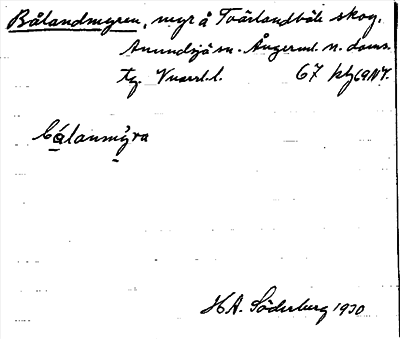 Bålandmyren, myr å Tvärlandböle skog,
Anundsjö sn. Ångerml. n. doms.
tg. Vnorrl. l. 67 kbl 69 NV.
bálanmýra
H.A. Söderberg 1930